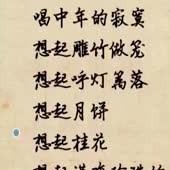 唱中年的寂寞
想起雕竹做笼
想起呼灯篱落
想起月饼
想起桂花
想起